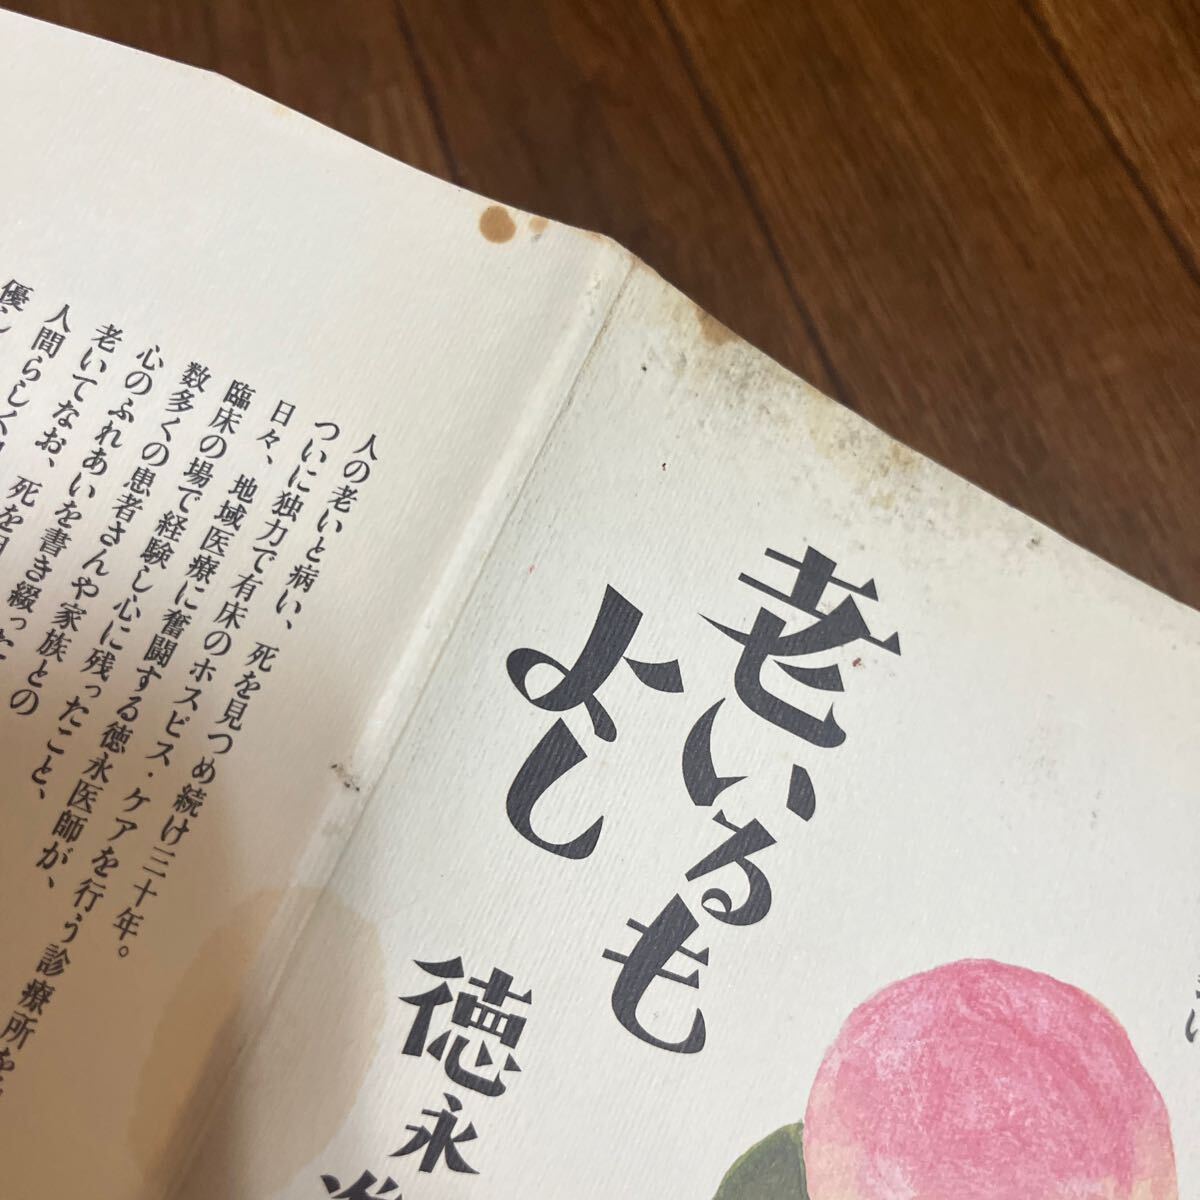 老いるも
よし
徳永
人の老いと病い、死を見つめ続け三十年。
ついに独力で有床のホスピス・ケアを行う診療所を
日々、地域医療に奮闘する徳永医師が、
臨床の場で経験し心に残ったこと、
数多くの患者さんや家族との
心のふれあいを書き綴った
老いてなお、死を
人間らしく
優し